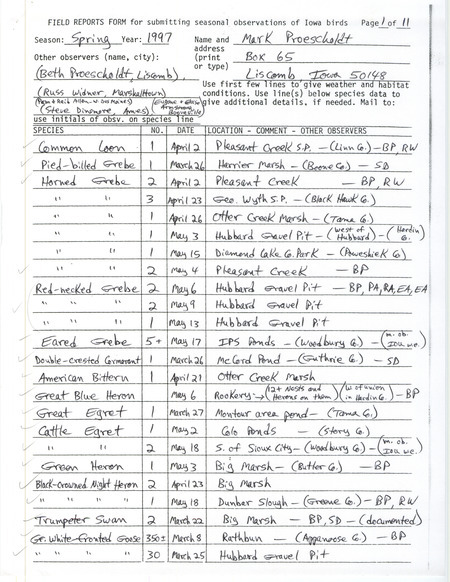 FIELD REPORTS FORM for submitting seasonal observations of Iowa birds Page 1 of 11
Season: Spring Year: 1997 Name and Mark Proescholdt
Other observers (name, city): address
(print Box 65
(Beth Proescholdt, Liscomb), or type) Liscomb Iowa 50148
(Russ Widner, Marshalltown) Use first few lines to give weather and habitat
conditions. Use line(s) below species data to
(Steve Dinsmore, Ames) give additional details, if needed. Mail to:
use initials of obsv. on species line
SPECIES NO. DATE LOCATION - COMMENT - OTHER OBSERVERS
Common Loon 1 April 2 Pleasant Creek S.P. - (Linn Co.) - BP, RW
Pied-billed Grebe 1 March 26 Herrier Marsh - (Boone Co.) - SD
Horned Grebe 2 April 2 Pleasant Creek - BP, RW
" " 3 April 23 Geo. Wyth S.P. - (Black Hawk Co.)
" " 1 April 26 Otter Creek Marsh - (Tama Co.)
" " 1 May 3 Hubbard Gravel Pit - (west of Hubbard) - (Hardin Co.)
" " 1 May 15 Diamond Lake Co. Park - (Poweshiek Co)
" " 2 May 4 Pleasant Creek - BP
Red-necked Grebe 2 May 6 Hubbard Gravel Pit - BP, PA, RA, EA, EA
" " " 2 May 9 Hubbard Gravel Pit
" " " 1 May 13 Hubbard Gravel Pit
Eared Grebe 5+ May 17 IPS Ponds - (Woodbury Co.) - (m. ob. IOU me.)
Double-crested Cormorant 1 March 26 McCord Pond - (Guthrie Co.) - SD
American Bittern 1 April 21 Otter Creek Marsh
Great Blue Heron May 6 Rookery → (12+ Nests and Herons on them) (W of Union in Hardin Co.) - BP
Great Egret 1 March 27 Montour area pond - (Tama Co.)
Cattle Egret 1 May 2 Colo Ponds - (Story Co.)
2 May 18 S. of Sioux City - (Woodbury Co.) - (m. ob. IOU we.)
Green Heron 1 May 3 Big Marsh - (Butler Co.) - BP
Black-crowned Night Heron 2 April 23 Big Marsh
1 May 18 Dunbar Slough - (Greene Co.) - BP, RW
Trumpeter Swan 2 March 22 Big Marsh - BP, SD - (documented)
Gr. White-fronted Goose 350± March 8 Rathbun - (Appanoose Co.) - BP
" " " " 30 March 25 Hubbard Gravel Pit